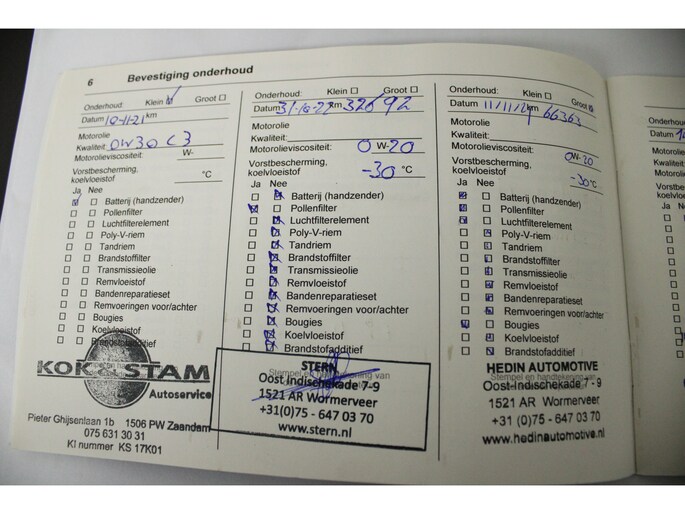 6 Bevestiging onderhoud
Onderhoud: Klein Groot
Datum 10-11-21 km
Motorolie
Kwaliteit: 0W30 C3
Motorolieviscositeit: W-
Vorstbescherming,
koelvloeistof °C
Ja Nee
Batterij (handzender)
Pollenfilter
Luchtfilterelement
Poly-V-riem
Tandriem
Brandstoffilter
Transmissieolie
Remvloeistof
Bandenreparatieset
Remvoeringen voor/achter
Bougies
Koelvloeistof
Brandstofadditief
KOK & STAM
Autoservice
Pieter Ghijsenlaan 1b 1506 PW Zaandam
075 631 30 31
KI nummer KS 17K01
Onderhoud: Klein Groot
Datum 31-10-22 km 32692
Motorolie
Kwaliteit:
Motorolieviscositeit: 0 W-20
Vorstbescherming,
koelvloeistof -30 °C
Ja Nee
Batterij (handzender)
Pollenfilter
Luchtfilterelement
Poly-V-riem
Tandriem
Brandstoffilter
Transmissieolie
Remvloeistof
Bandenreparatieset
Remvoeringen voor/achter
Bougies
Koelvloeistof
Brandstofadditief
STERN
Stempel en handtekening van
Oost Indischekade 7-9
1521 AR Wormerveer
+31(0)75 - 647 03 70
www.stern.nl
Onderhoud: Klein Groot
Datum 11/11/24 km 66363
Motorolie
Kwaliteit:
Motorolieviscositeit: 0W-20
Vorstbescherming,
koelvloeistof -30°C
Ja Nee
Batterij (handzender)
Pollenfilter
Luchtfilterelement
Poly-V-riem
Tandriem
Brandstoffilter
Transmissieolie
Remvloeistof
Bandenreparatieset
Remvoeringen voor/achter
Bougies
Koelvloeistof
Brandstofadditief
HEDIN AUTOMOTIVE
Stempel en handtekening van
Oost-Indischekade 7 - 9
1521 AR Wormerveer
+31 (0)75 - 647 03 70
www.hedinautomotive.nl